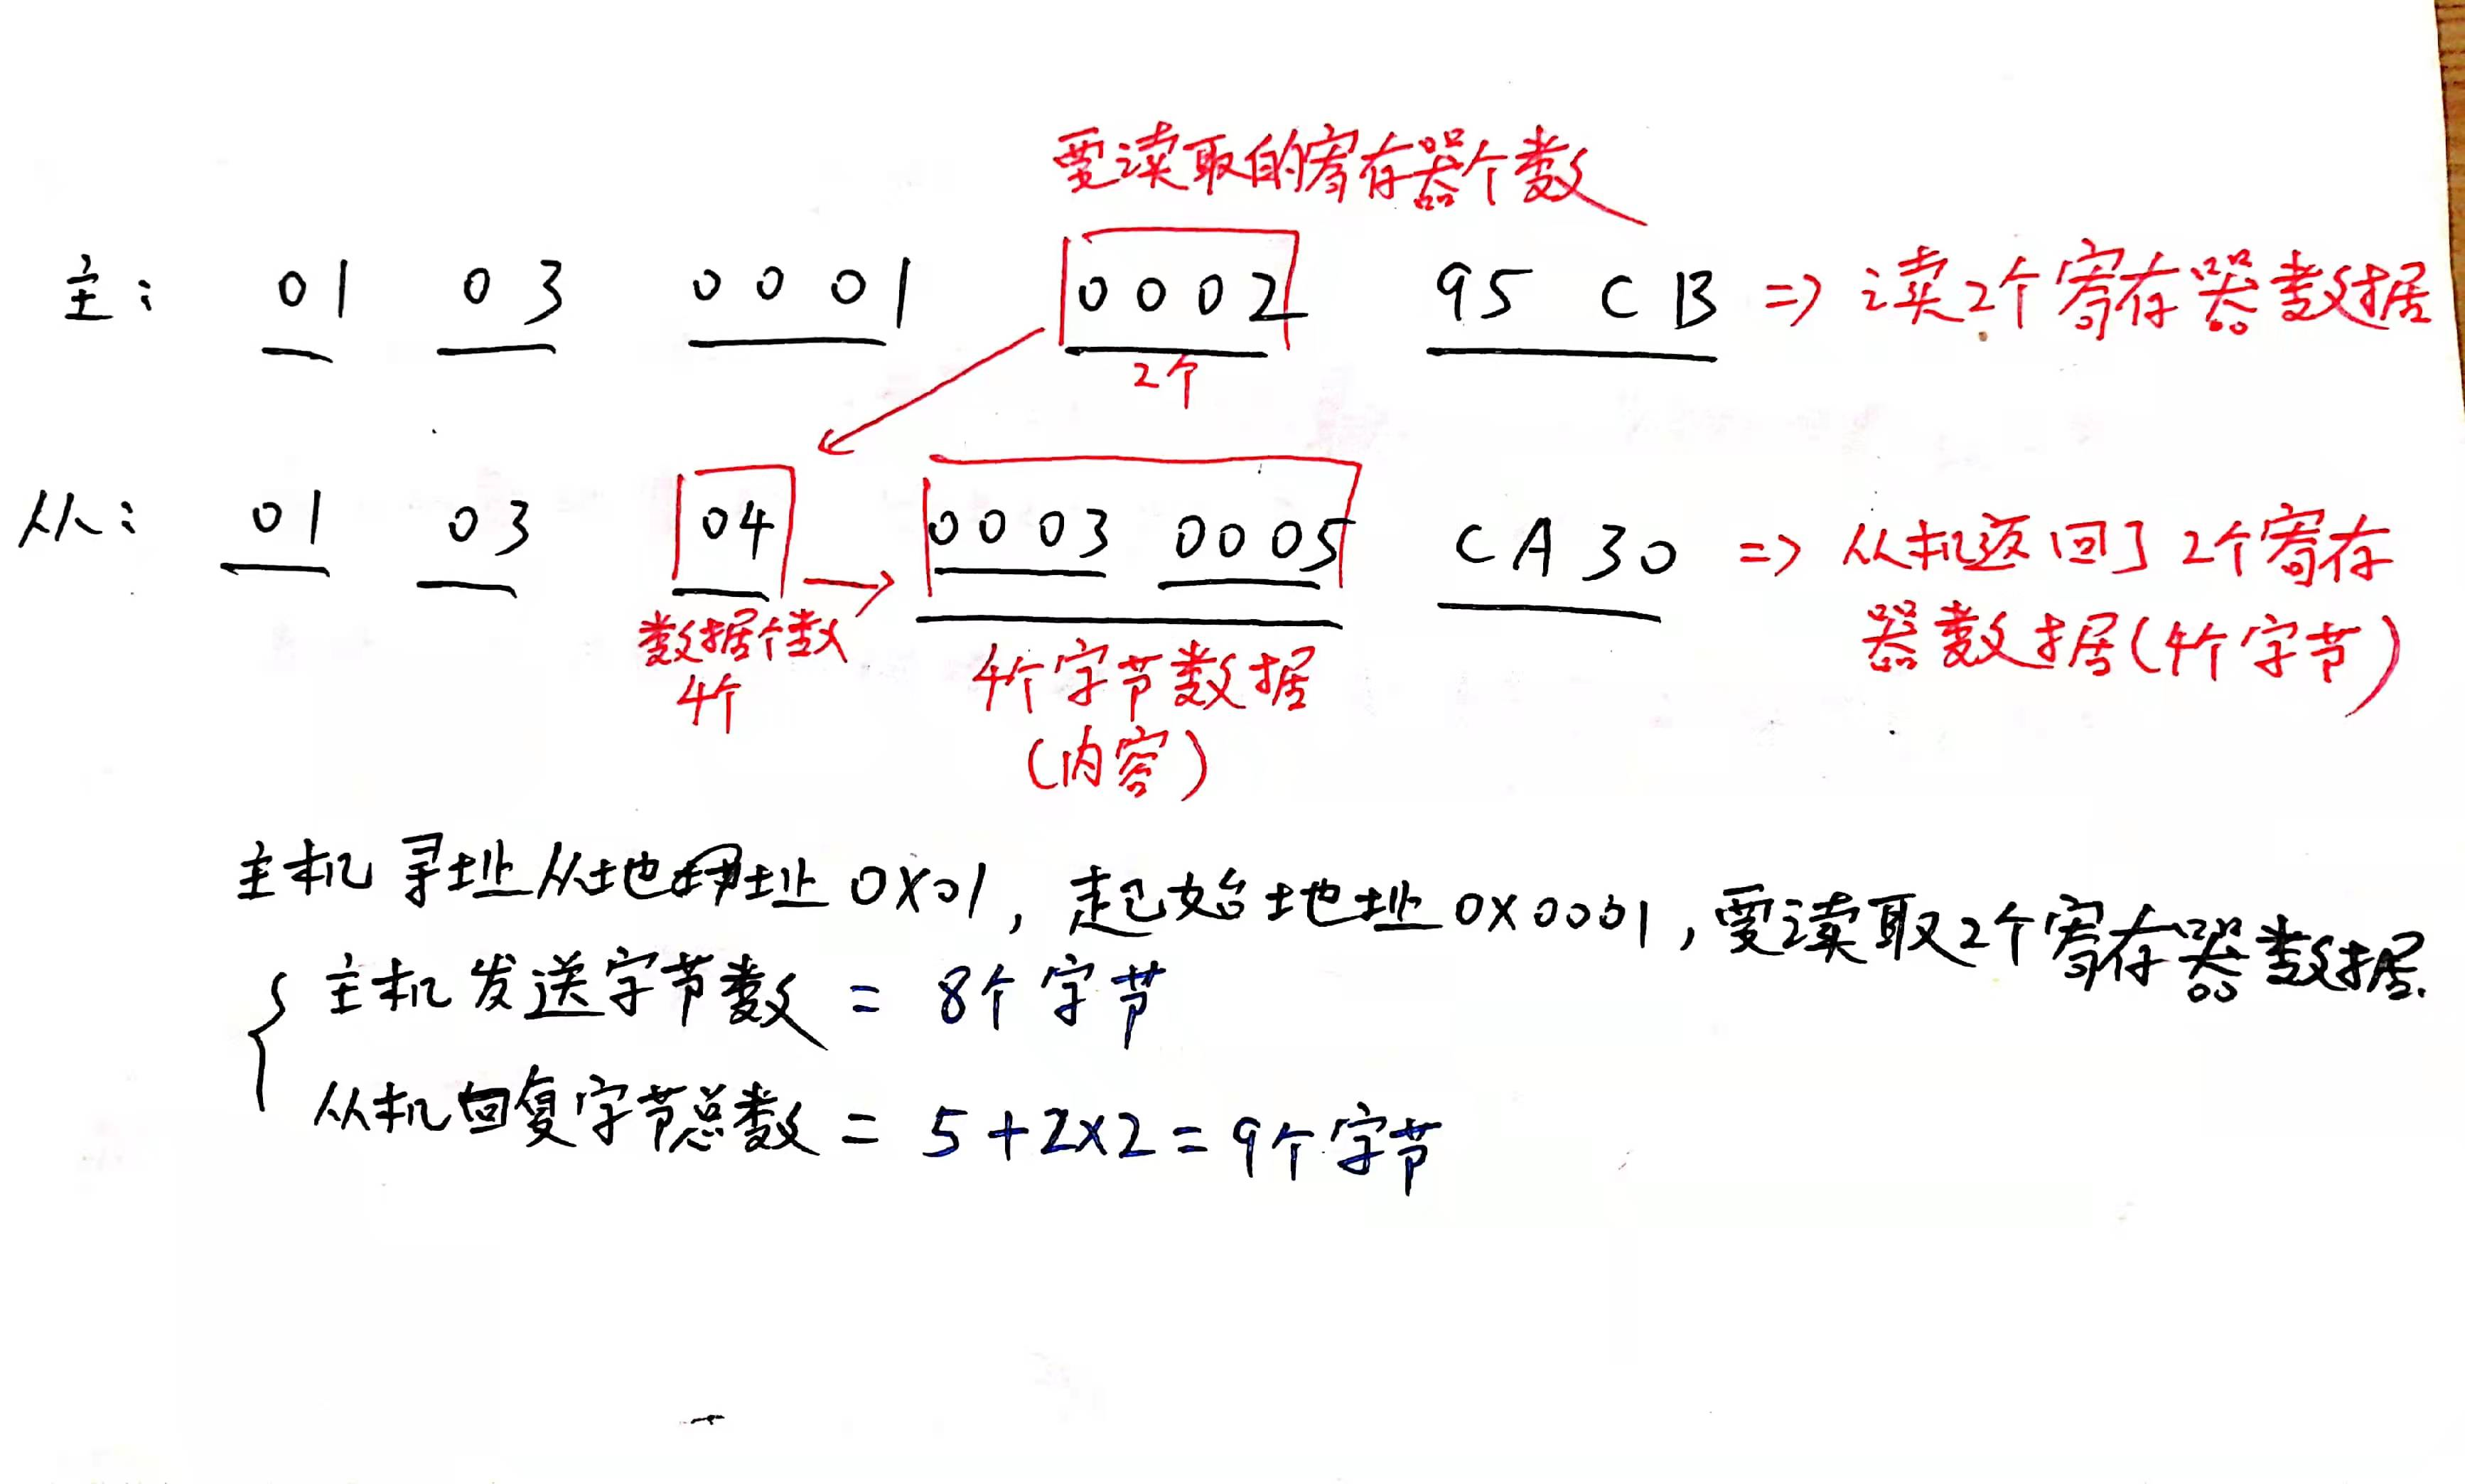 要读取的寄存器个数
主: 01 03 0001 0002 95 CB => 读2个寄存器数据
2个
从: 01 03 04 0003 0005 CA30 => 从机返回了2个寄存
器数据(4个字节)
数据个数
4个
4个字节数据
(内容)
主机寻址从地址 0X01, 起始地址0X0001,要读取2个寄存器数据.
主机发送字节数 = 8个字节
从机回复字节总数 = 5+2×2=9个字节